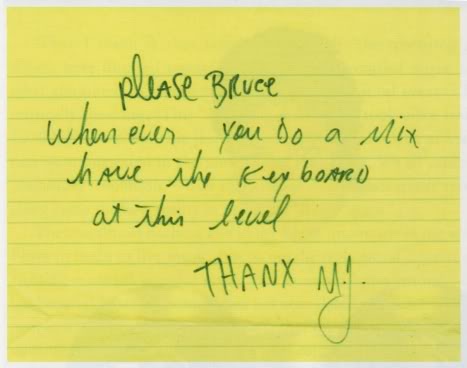 please Bruce
Whenever you do a Mix
have the keyboard
at this level
THANX M.J.